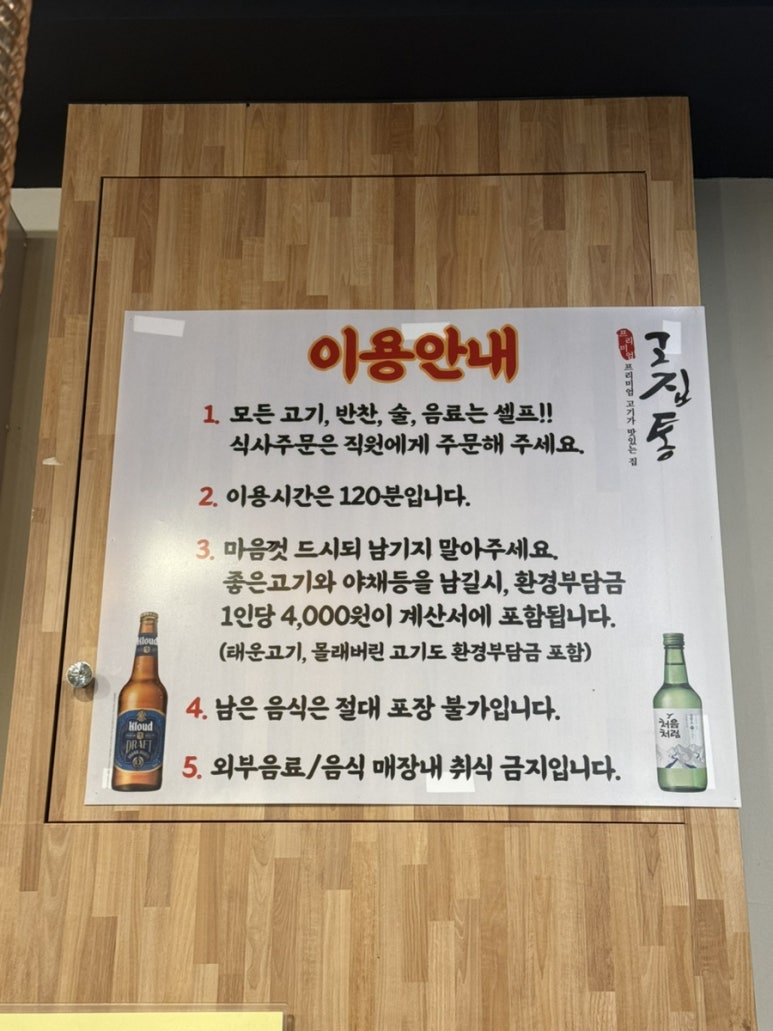 이용안내
프리미엄
고집통
프리미엄 고기가 맛있는 집
1. 모든 고기, 반찬, 술, 음료는 셀프!!
식사주문은 직원에게 주문해 주세요.
2. 이용시간은 120분입니다.
3. 마음껏 드시되 남기지 말아주세요.
좋은고기와 야채등을 남길시, 환경부담금
1인당 4,000원이 계산서에 포함됩니다.
(태운고기, 몰래버린 고기도 환경부담금 포함)
4. 남은 음식은 절대 포장 불가입니다.
5. 외부음료/음식 매장내 취식 금지입니다.
Kloud
Kloud
DRAFT
처음
처럼